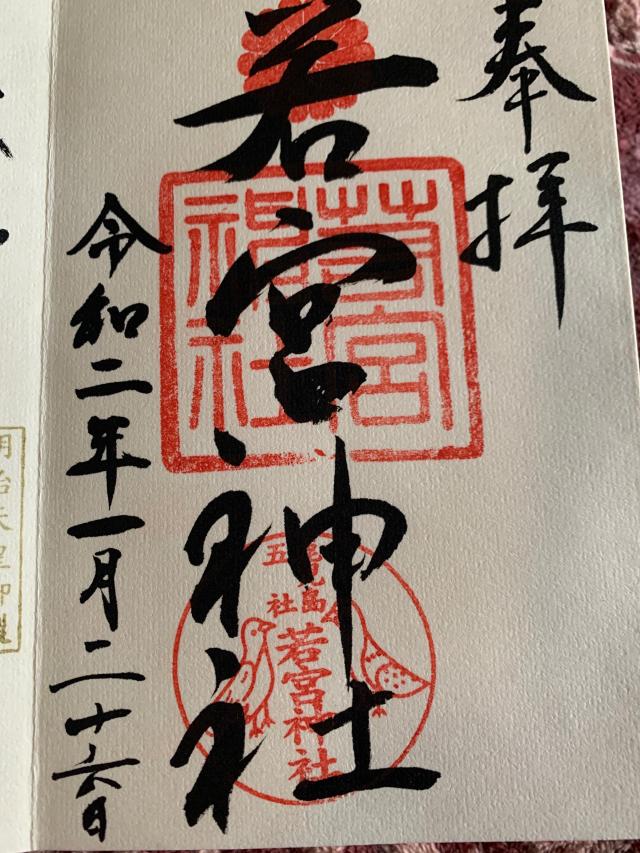 奉拝
若宮神社
若宮神社
鹿児島
五社
若宮神社
令和二年一月二十六日
明治天皇御製